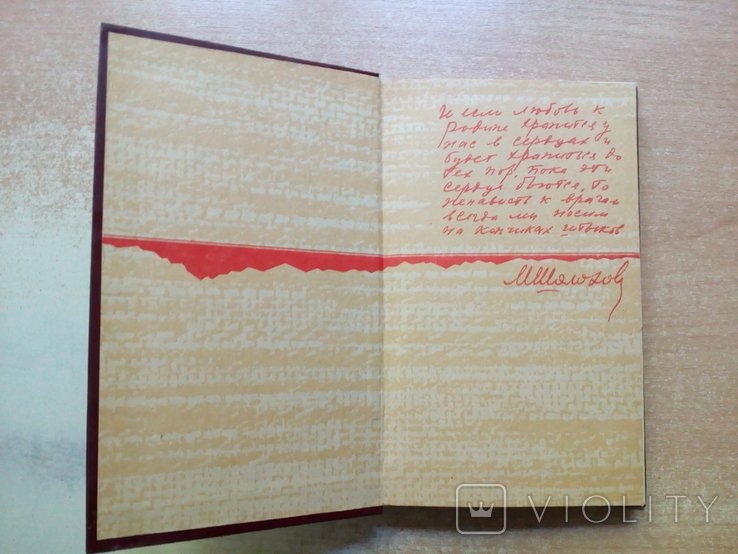 И если любовь к
родине хранится у
нас в сердцах и
будет храниться до
тех пор, пока эти
сердца бьются, то
ненависть к врагам
всегда мы носим
на кончиках штыков
МШолохов
VIOLITY